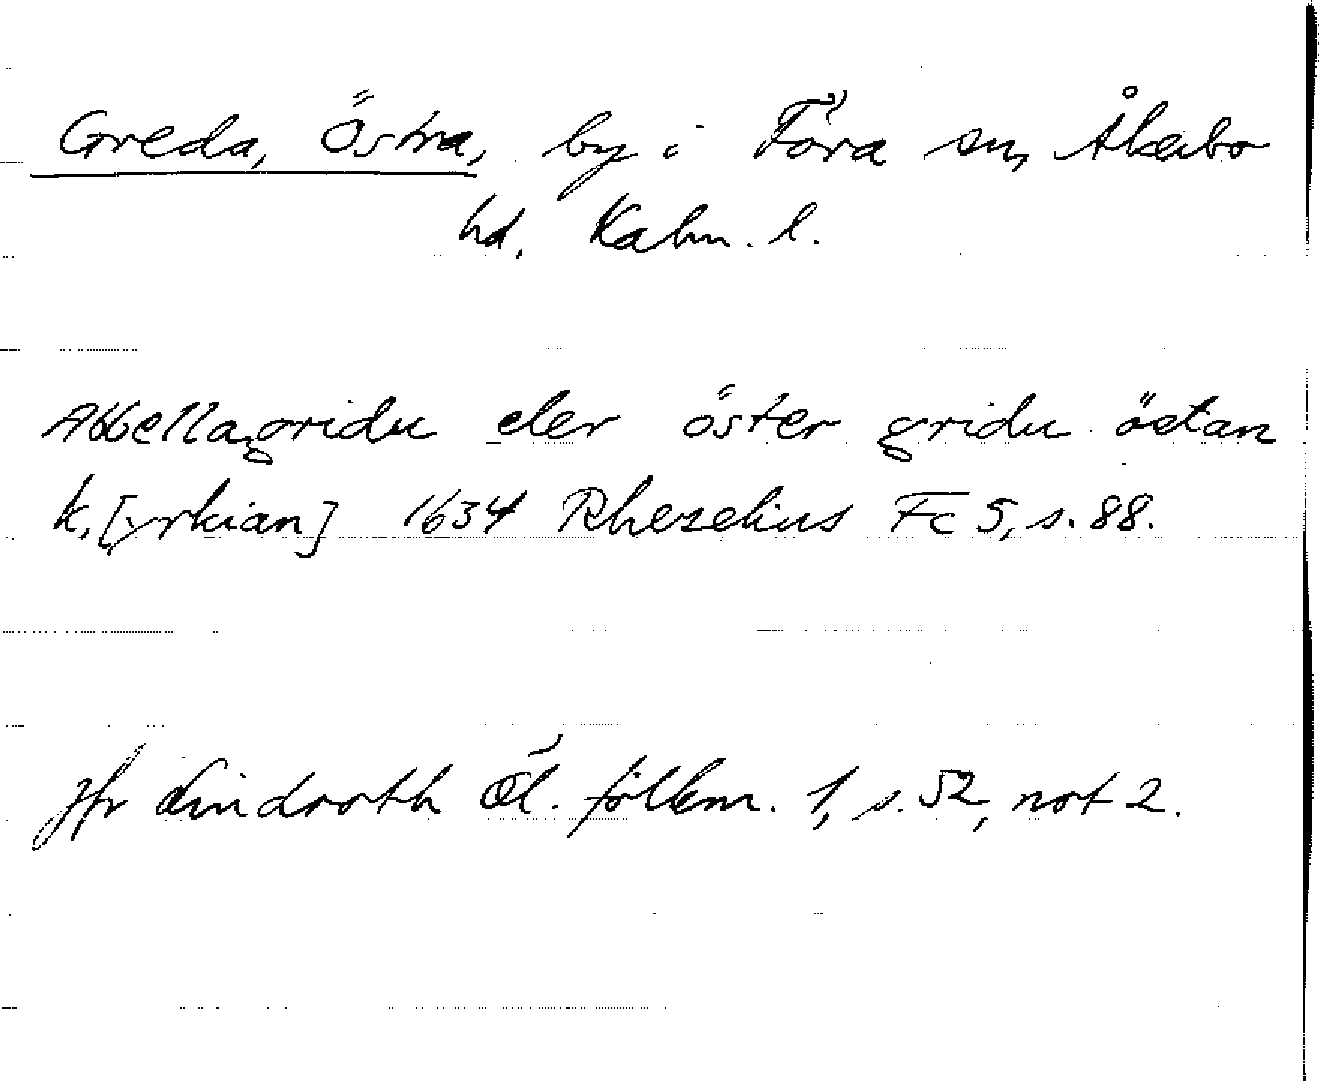 Greda, Östra, by i Föra sn, Åkerbo
hd. Kalm. l.
Abbellagridu eler öster gridu östan
k,[yrkian] 1634 Rhezelius Fc 5, s. 88.
Jfr Lindroth Öl. folkm. 1, s. 52, not 2.